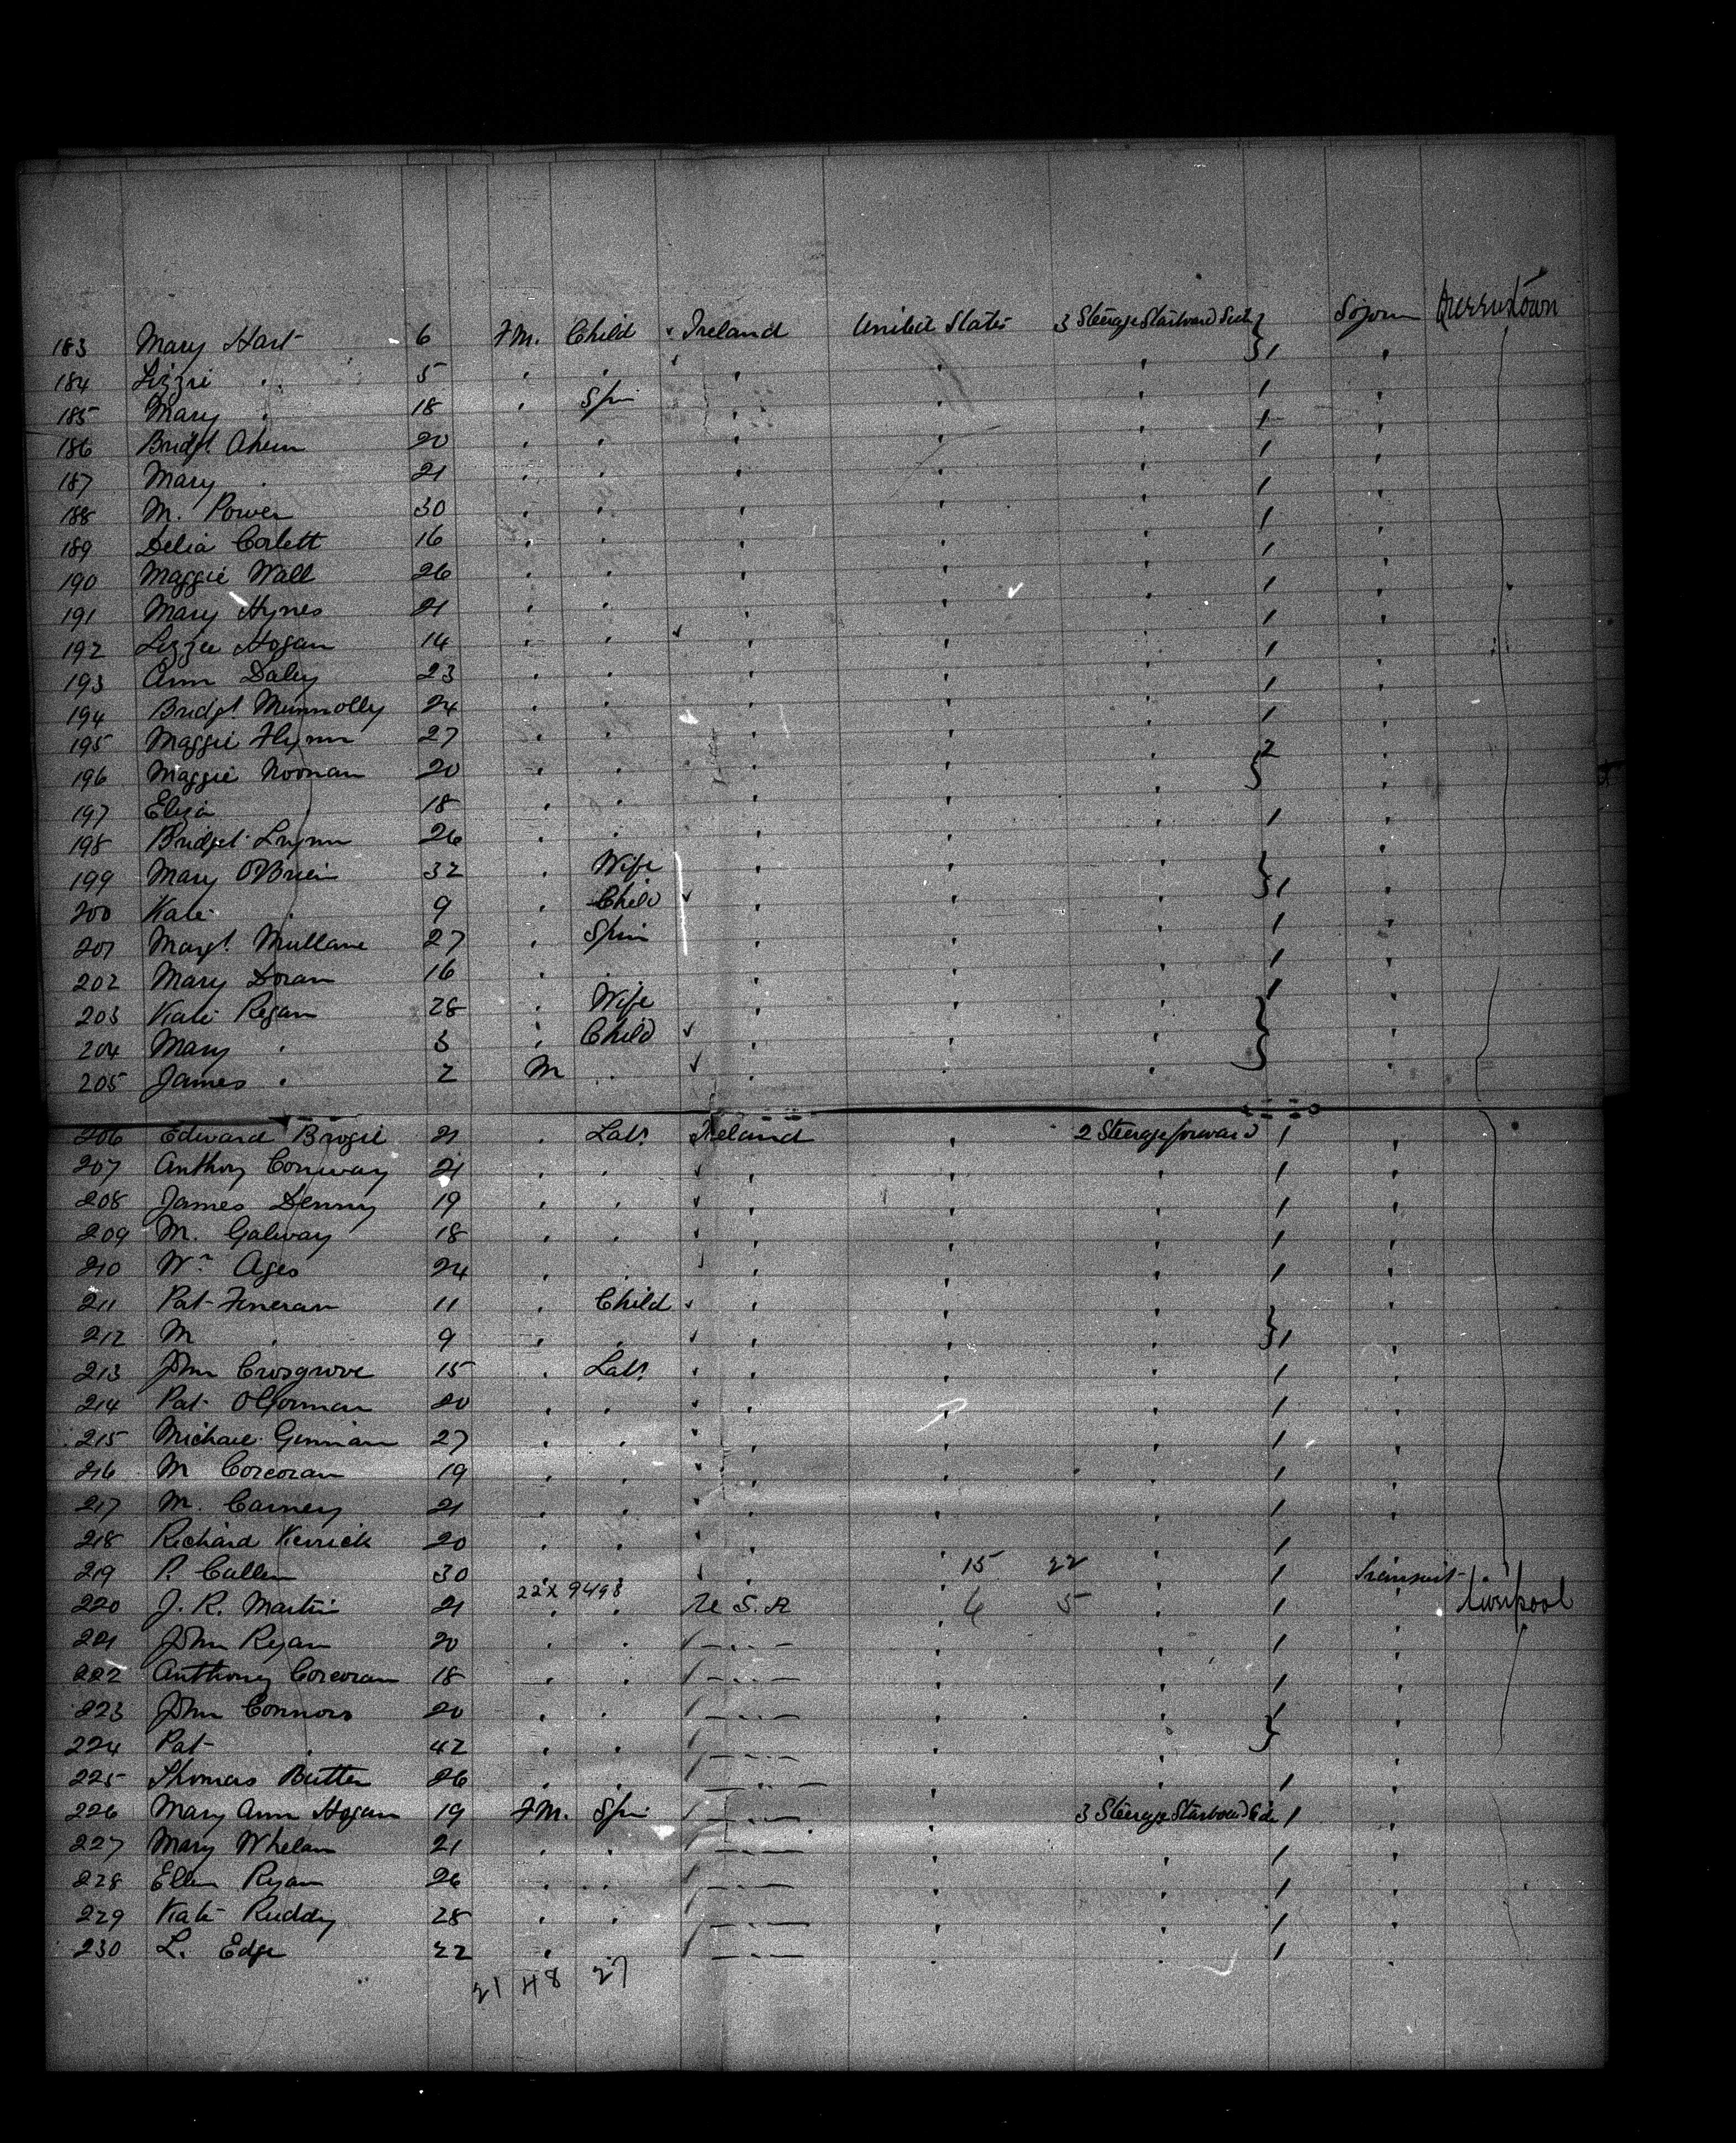 183 Mary Hart 6 FM. Child Ireland United States 3 Steerage Starboard Side } 1 Sojourn Queenstown
184 Lizzie " 5 " " " " " "
185 Mary " 18 " Spin " " " 1 "
186 Bridgt. Ahern 20 " " " " " 1 "
187 Mary " 21 " " " " " 1 "
188 M. Power 30 " " " " " 1 "
189 Delia Corlett 16 " " " " " 1 "
190 Maggie Wall 26 " " " " " 1 "
191 Mary Hynes 21 " " " " " 1 "
192 Lizzie Hogan 14 " " " " " 1 "
193 Ann Daley 23 " " " " " 1 "
194 Bridgt. Munnolly 24 " " " " " 1 "
195 Maggie Flynn 27 " " " " " 1 "
196 Maggie Noonan 20 " " " " " } 2 "
197 Eliza 18 " " " " " "
198 Bridget 26 " " " " " 1 "
199 Mary O'Brien 32 " Wife " " " } 1 "
200 Kate " 9 " Child " " " "
201 Margt. Mullane 27 " Spin " " " 1 "
202 Mary Doran 16 " " " " " 1 "
203 Kate Regan 28 " Wife " " " } 1 "
204 Mary " 3 " Child " " " "
205 James " 2 M " " " " "
206 Edward Brogie 21 " Labr. Ireland " 2 Steerage forward 1 "
207 Anthony Conway 21 " " " " " 1 "
208 James Denny 19 " " " " " 1 "
209 M. Galway 18 " " " " " 1 "
210 Wm. Ages 24 " " " " " 1 "
211 Pat Fineran 11 " Child " " " } 1 "
212 M " 9 " " " " " "
213 John Crosgrove 15 " Labr. " " " 1 "
214 Pat O'Gorman 20 " " " " " 1 "
215 Michael 27 " " " " " 1 "
216 M Corcoran 19 " " " " " 1 "
217 M. Carney 21 " " " " " 1 "
218 Richard Kerrick 20 " " " " " 1 "
219 P. Cullen 30 " " " " 15 22 " 1 Transit
220 J. R. Martin 21 22 X 9498 " " U. S. A " 6 5 " 1 " Liverpool
221 John Ryan 20 " " " " " 1 "
222 Anthony Corcoran 18 " " " " " 1 "
223 John Connors 20 " " " " " } 1 "
224 Pat " 42 " " " " " "
225 Thomas Butter 26 " " " " " 1 "
226 Mary Ann Hogan 19 FM. Spin " " 3 Steerage Starboard Side 1 "
227 Mary Whelan 21 " " " " " 1 "
228 Ellen Ryan 26 " " " " " 1 "
229 Kate Ruddy 28 " " " " " 1 "
230 L. Edge 22 " " " " " 1 "
21 48 27